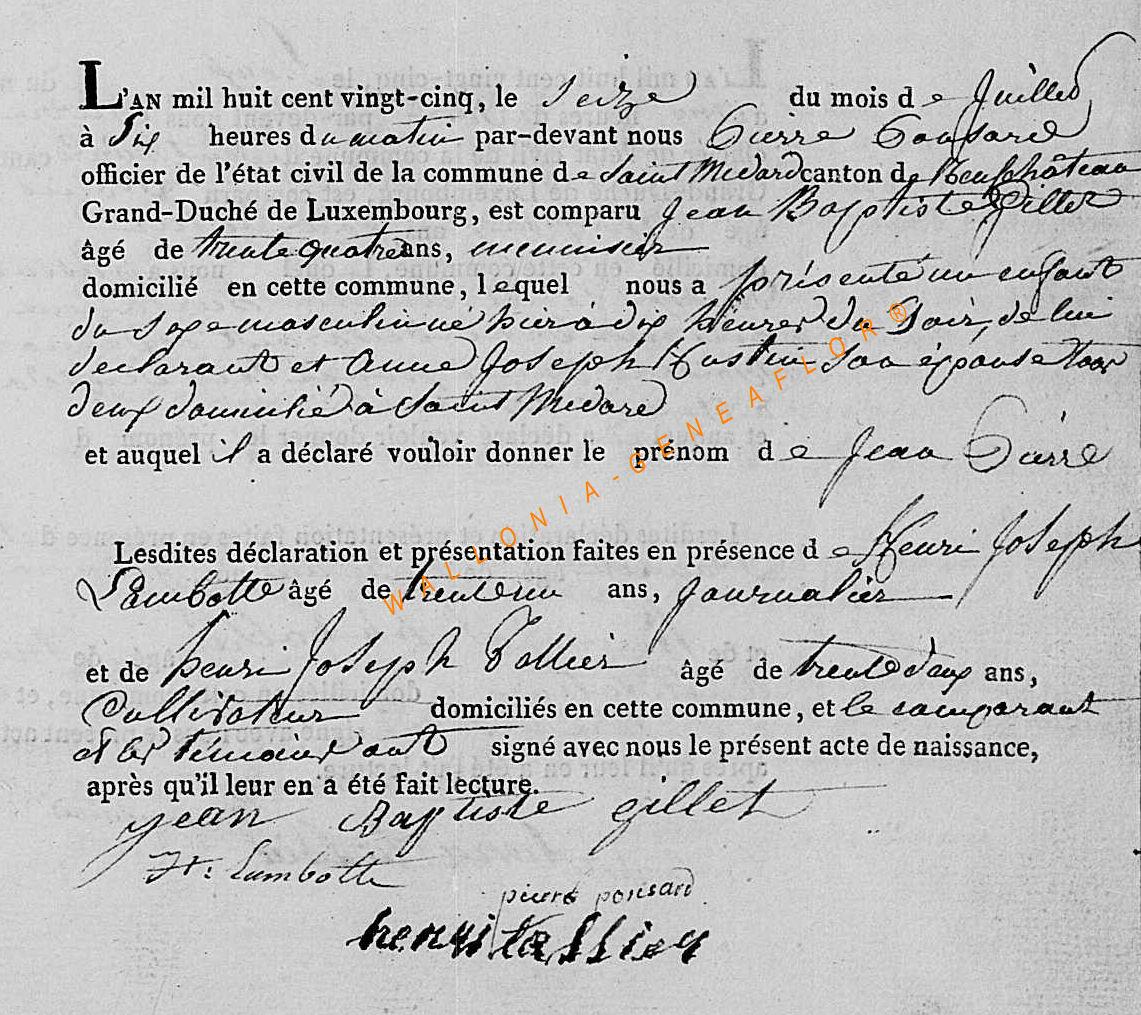 L'AN mil huit cent vingt-cinq, le Seize du mois de Juillet
à Six heures du matin par-devant nous Pierre Ponsard
officier de l'état civil de la commune de Saint Medard canton de Neufchâteau
Grand-Duché de Luxembourg, est comparu Jean Baptiste Gillet
âgé de trente quatre ans, menuisier
domicilié en cette commune, lequel nous a présenté un enfant
du Sexe masculin né hier à dix heures du Soir, de lui
declarant et Anne Joseph Hustin Son épouse tous
deux domicilié à Saint Medard
et auquel il a déclaré vouloir donner le prénom de Jean Pierre
Lesdites déclaration et présentation faites en présence de Henri Joseph
Lambotte âgé de trente un ans, Journalier
et de henri Joseph Tallier âgé de trente deux ans,
Cultivateur domiciliés en cette commune, et le comparant
et les témoins ont signé avec nous le présent acte de naissance,
après qu'il leur en a été fait lecture.
jean Baptiste gillet
H: Lambotte
pierre ponsard
henri tallier
WALLONIA-GENEAFLOR®